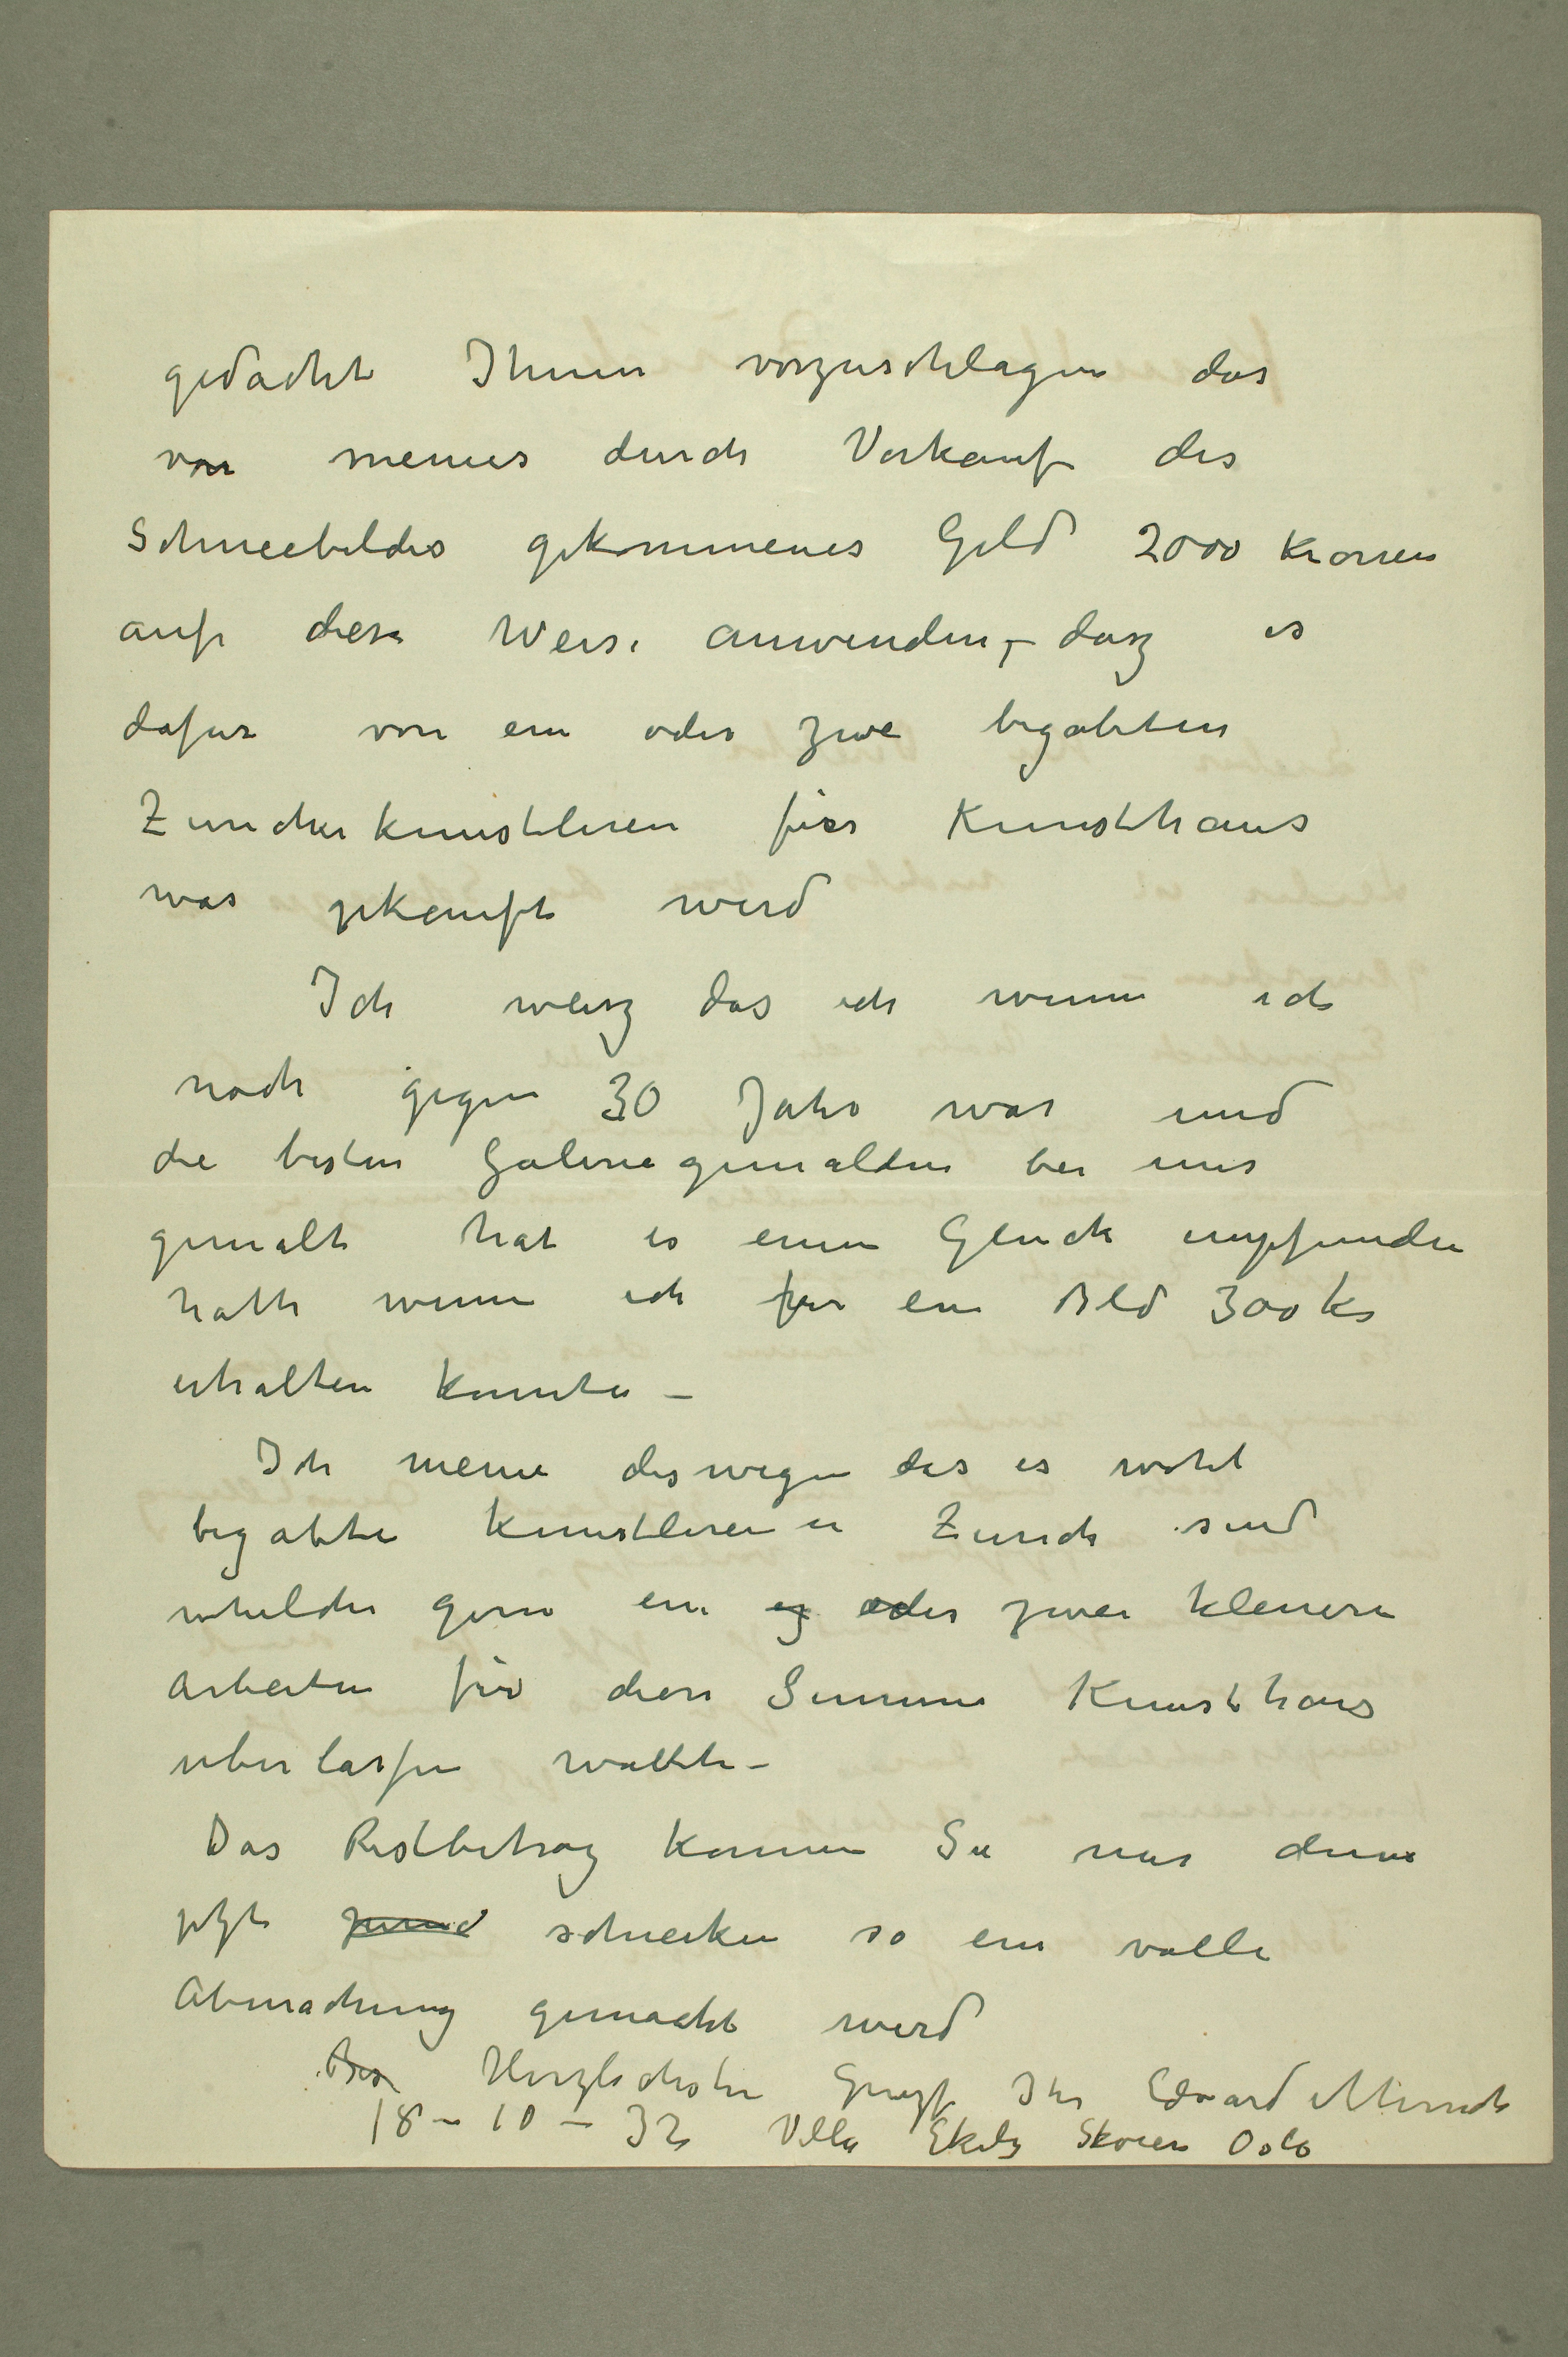 gedacht Ihnen vorzuschlagen das
von meines durch Verkauf des
Schneebildes gekommenes Geld 2000 Kronen
auf diese Weise anwenden, – dasz es
dafur von ein oder zwei begabten
Zuricherkunstleren fürs Kunsthaus
was gekauft wird
Ich weisz das ich wenn ich
noch gegen 30 Jahr war und
die besten Galeriegemälden bei uns
gemalt hat es einen Gluck empfunden
hätte wenn ich für ein Bild 300 Kr
erhalten konnte –
Ich meine deswegen das es wohl
begabte Kunstleren in Zurich sind
whelche gern ein oder zwei kleinere
Arbeiten für diese Summe Kunsthaus
uberlassen wollte –
Das Restbetrag konnen Sie mir denn
jetzt schicken so ein volle
Abmachung gemacht wird
Herzlichsten Grusz Ihr Edvard Munch
18 – 10 – 32 Villa Ekely Skøien Oslo